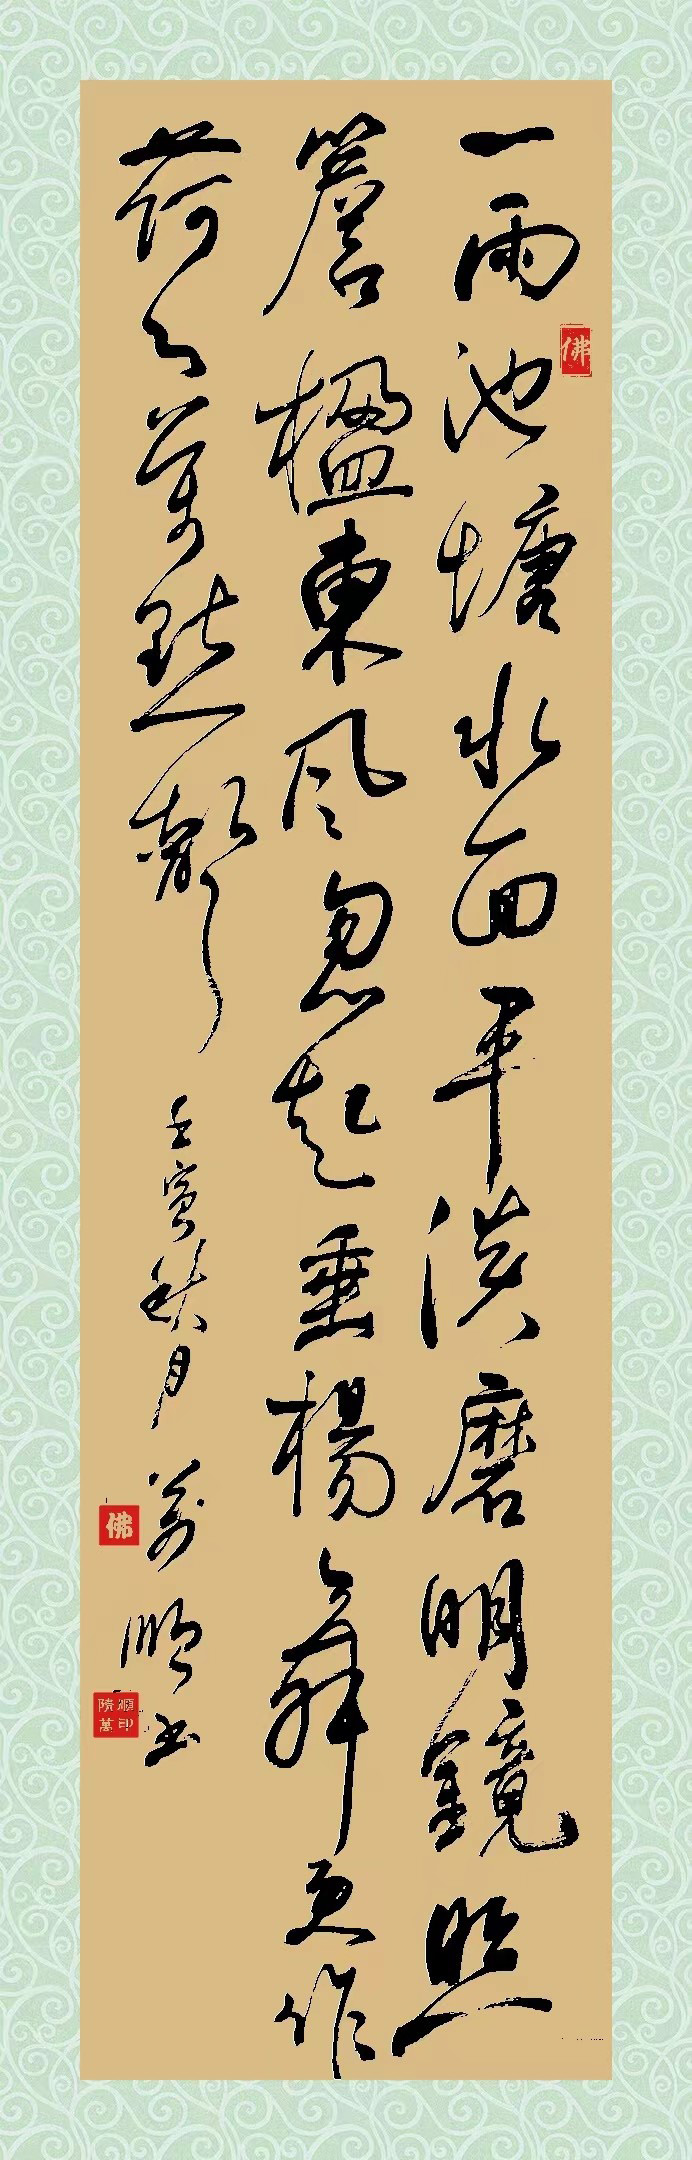 一雨池塘水面平淡磨明鏡照
簷楹東風忽起垂楊舞更作
荷心萬點聲
壬寅秋月萬順書
佛
佛